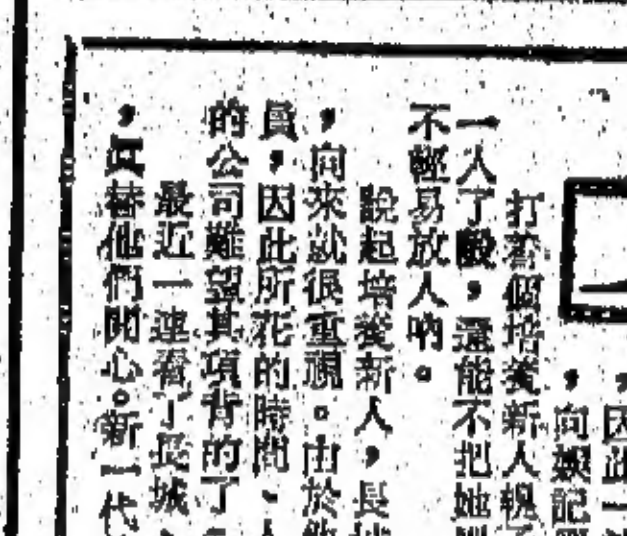 因此一
，向娛記
打着個培養新人
一人了般，還能不把她
不輕易放人吶。
說起培養新人，長
，向來就很重視。由於
員，因此所花的時間、
的公司難望其項背的了
最近一連看了長城
，真替他們開心。新一代